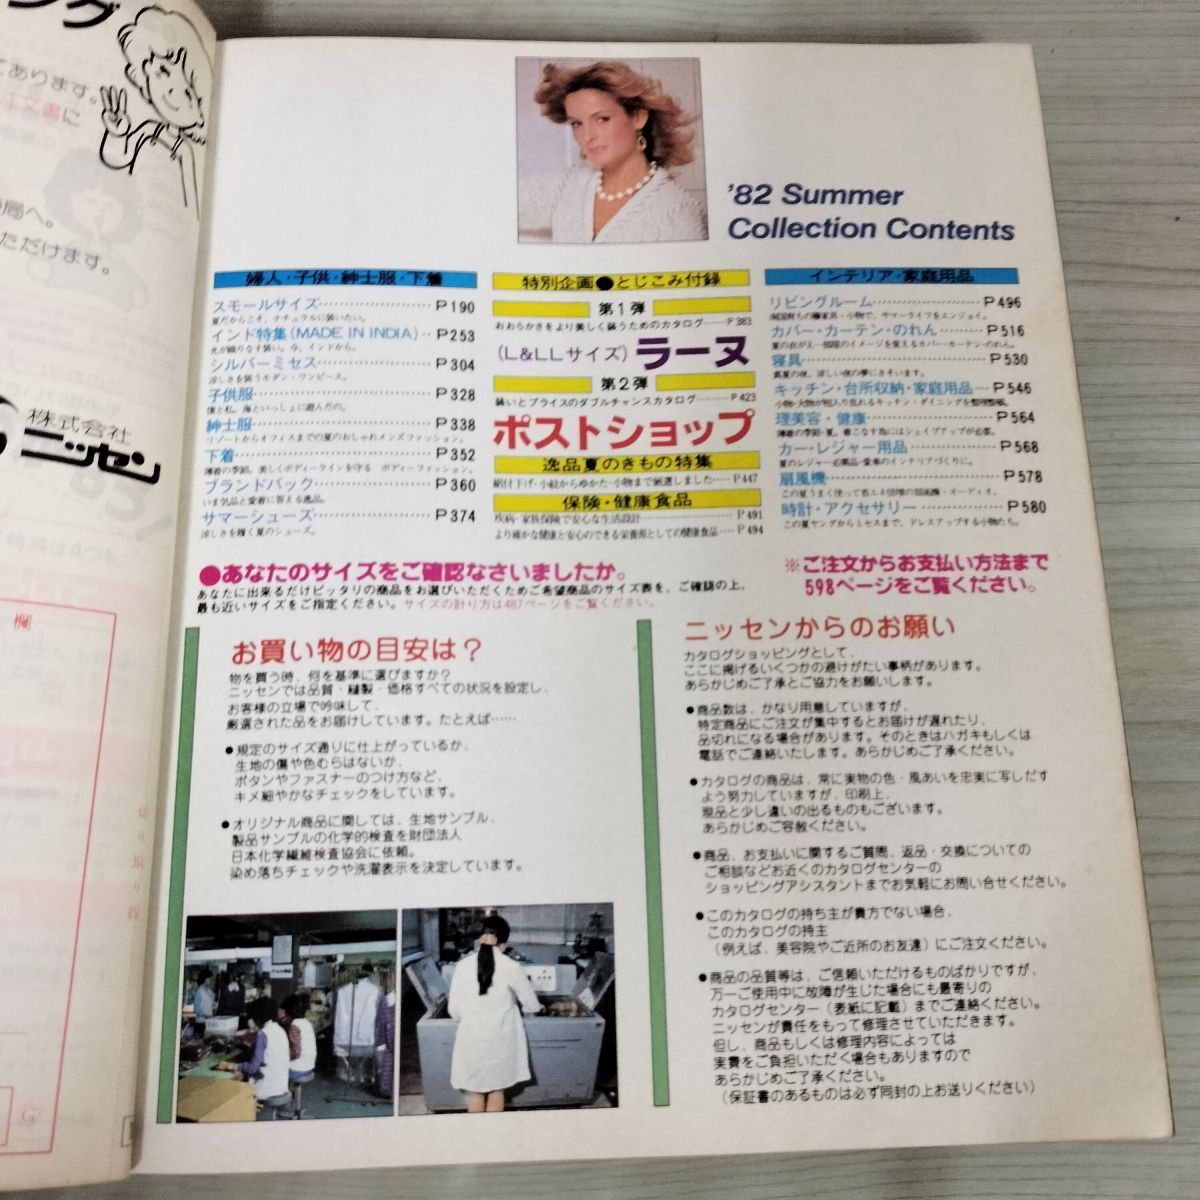 ング
てあります。
注文書に
局へ。
ただけます。
株式会社
ニッセン
'82 Summer
Collection Contents
婦人・子供・紳士服・下着
スモールサイズ P190
夏だからこそ、ナチュラルに装いたい。
インド特集(MADE IN INDIA) P253
光が織りなす装い。今、インドから。
シルバーミセス P304
涼しさを装うモダン・ワンピース。
子供服 P328
僕と私。海といっしょに遊んだの。
紳士服 P338
リゾートからオフィスまでの夏のおしゃれメンズファッション。
下着 P352
薄着の季節。美しくボディーラインを守る ボディーファッション。
ブランドバック P360
いま気品と愛着に答える逸品。
サマーシューズ P374
涼しさを履く夏のシューズ。
特別企画●とじこみ付録
第1弾
おおらかさをより美しく装うためのカタログ P383
(L&LLサイズ)ラーヌ
第2弾
装いとプライスのダブルチャンスカタログ P423
ポストショップ
逸品夏のきもの特集
絽付下げ・小紋からゆかた・小物まで厳選しました P447
保険・健康食品
疾病・家族保険で安心な生活設計 P491
より確かな健康と安心のできる栄養源としての健康食品 P494
インテリア・家庭用品
リビングルーム P496
南国育ちの籐家具・小物で、サマーライフをエンジョイ。
カバー・カーテン・のれん P516
夏の衣がえ…部屋のイメージを変えるカバー・カーテン・のれん。
寝具 P530
真夏の夜、涼しい夜の夢にさそいます。
キッチン・台所収納・家庭用品 P546
小物・大物が入り乱れるキッチン・ダイニングを整理整頓。
理美容・健康 P564
薄着の季節・夏。着こなす為にはシェイプアップが必要。
カー・レジャー用品 P568
夏のレジャー必需品・愛車のインテリアづくりに。
扇風機 P578
この夏うまく使って省エネ倍増の扇風機・オーディオ。
時計・アクセサリー P580
この夏ヤングからミセスまで、ドレスアップする小物たち。
●あなたのサイズをご確認なさいましたか。
あなたに出来るだけピッタリの商品をお選びいただくためご希望商品のサイズ表を、ご確認の上、
最も近いサイズをご指定ください。サイズの計り方は487ページをご覧ください。
※ご注文からお支払い方法まで
598ページをご覧ください。
お買い物の目安は？
物を買う時、何を基準に選びますか？
ニッセンでは品質・縫製・価格すべての状況を設定し、
お客様の立場で吟味して、
厳選された品をお届けしています。たとえば……
●規定のサイズ通りに仕上がっているか、
生地の傷や色むらはないか、
ボタンやファスナーのつけ方など、
キメ細やかなチェックをしています。
●オリジナル商品に関しては、生地サンプル、
製品サンプルの化学的検査を財団法人
日本化学繊維検査協会に依頼。
染め落ちチェックや洗濯表示を決定しています。
ニッセンからのお願い
カタログショッピングとして、
ここに掲げるいくつかの避けがたい事柄があります。
あらかじめご了承とご協力をお願いします。
●商品数は、かなり用意していますが、
特定商品にご注文が集中するとお届けが遅れたり、
品切れになる場合があります。そのときはハガキもしくは
電話でご連絡いたします。あらかじめご了承ください。
●カタログの商品は、常に実物の色・風あいを忠実に写しだす
よう努力していますが、印刷上、
現品と少し違いの出るものもございます。
あらかじめご容赦ください。
●商品、お支払いに関するご質問、返品・交換についての
ご相談などお近くのカタログセンターの
ショッピングアシスタントまでお気軽にお問い合せください。
●このカタログの持ち主が貴方でない場合、
このカタログの持主
（例えば、美容院やご近所のお友達）にご注文ください。
●商品の品質等は、ご信頼いただけるものばかりですが、
万一ご使用中に故障が生じた場合にも最寄りの
カタログセンター（表紙に記載）までご連絡ください。
ニッセンが責任をもって修理させていただきます。
但し、商品もしくは修理内容によっては
実費をご負担いただく場合もありますので
あらかじめご了承ください。
（保証書のあるものは必ず同封の上お送りください）
切り取り線
G